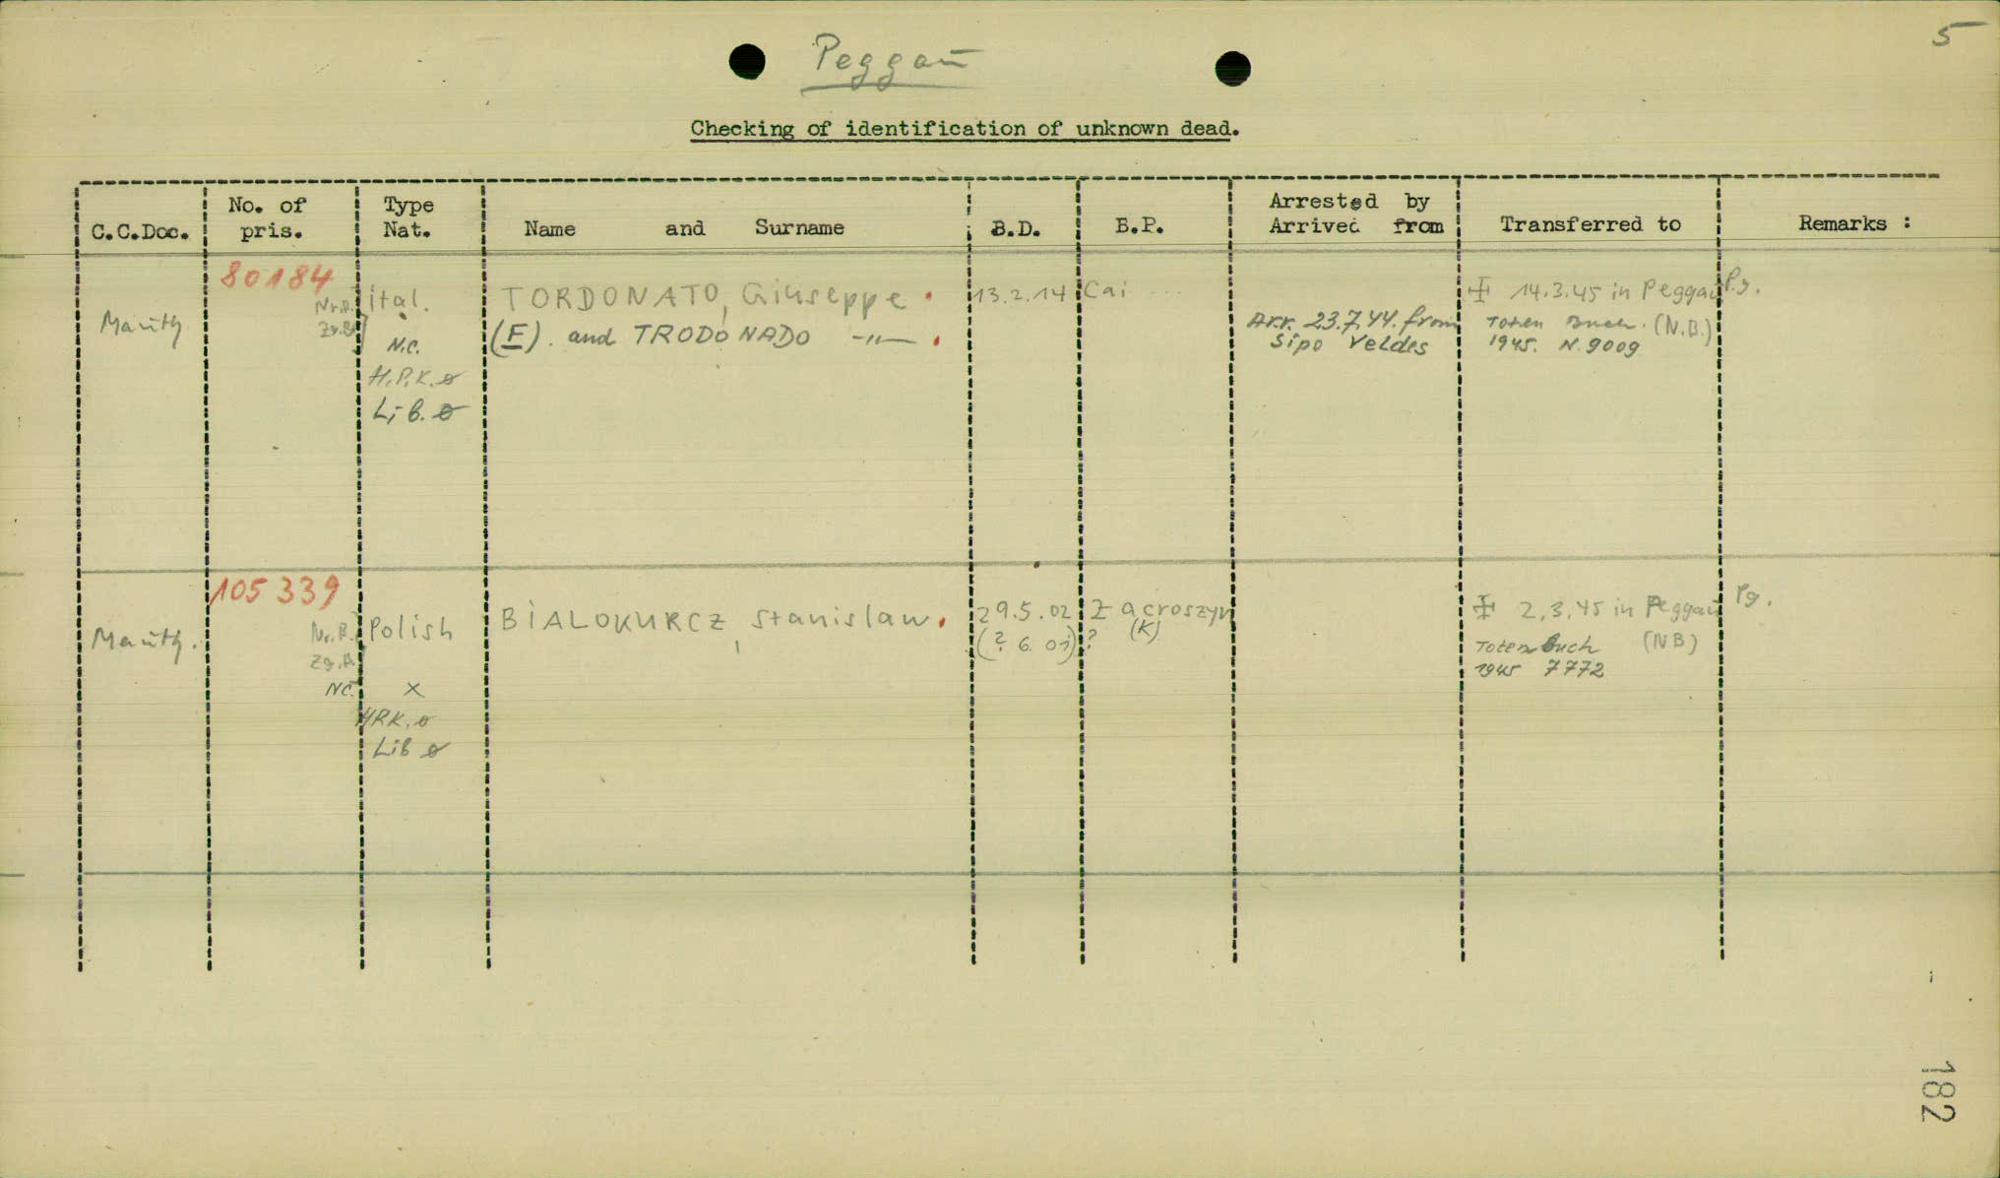 5
Peggaū
Checking of identification of unknown dead.
C.C.Doc.
No. of
pris.
Type
Nat.
Name and Surname
B.D.
B.P.
Arrested by
Arrived from
Transferred to
Remarks :
Mauth
80184
Nr.B.
ital.
N.C.
H.P.K. ø
Lib. ø
TORDONATO, Giuseppe .
(E). and TRODONADO -"- .
13.2.14
Cai ...
Arr. 23.7.44. from
Sipo Veldes
14.3.45 in Peggaū
Toten Buch. (N.B.)
1945. N. 9009
Pg.
Mauth.
105339
Nr.B.
NC.
Polish
x
HRK. ø
Lib ø
BIALOKURCZ, Stanislaw.
29.5.02
(? 6. 01)
Zacroszyn
? (K)
2.3.45 in Peggaū
Totenbuch (NB)
1945 7772
Pg.
182